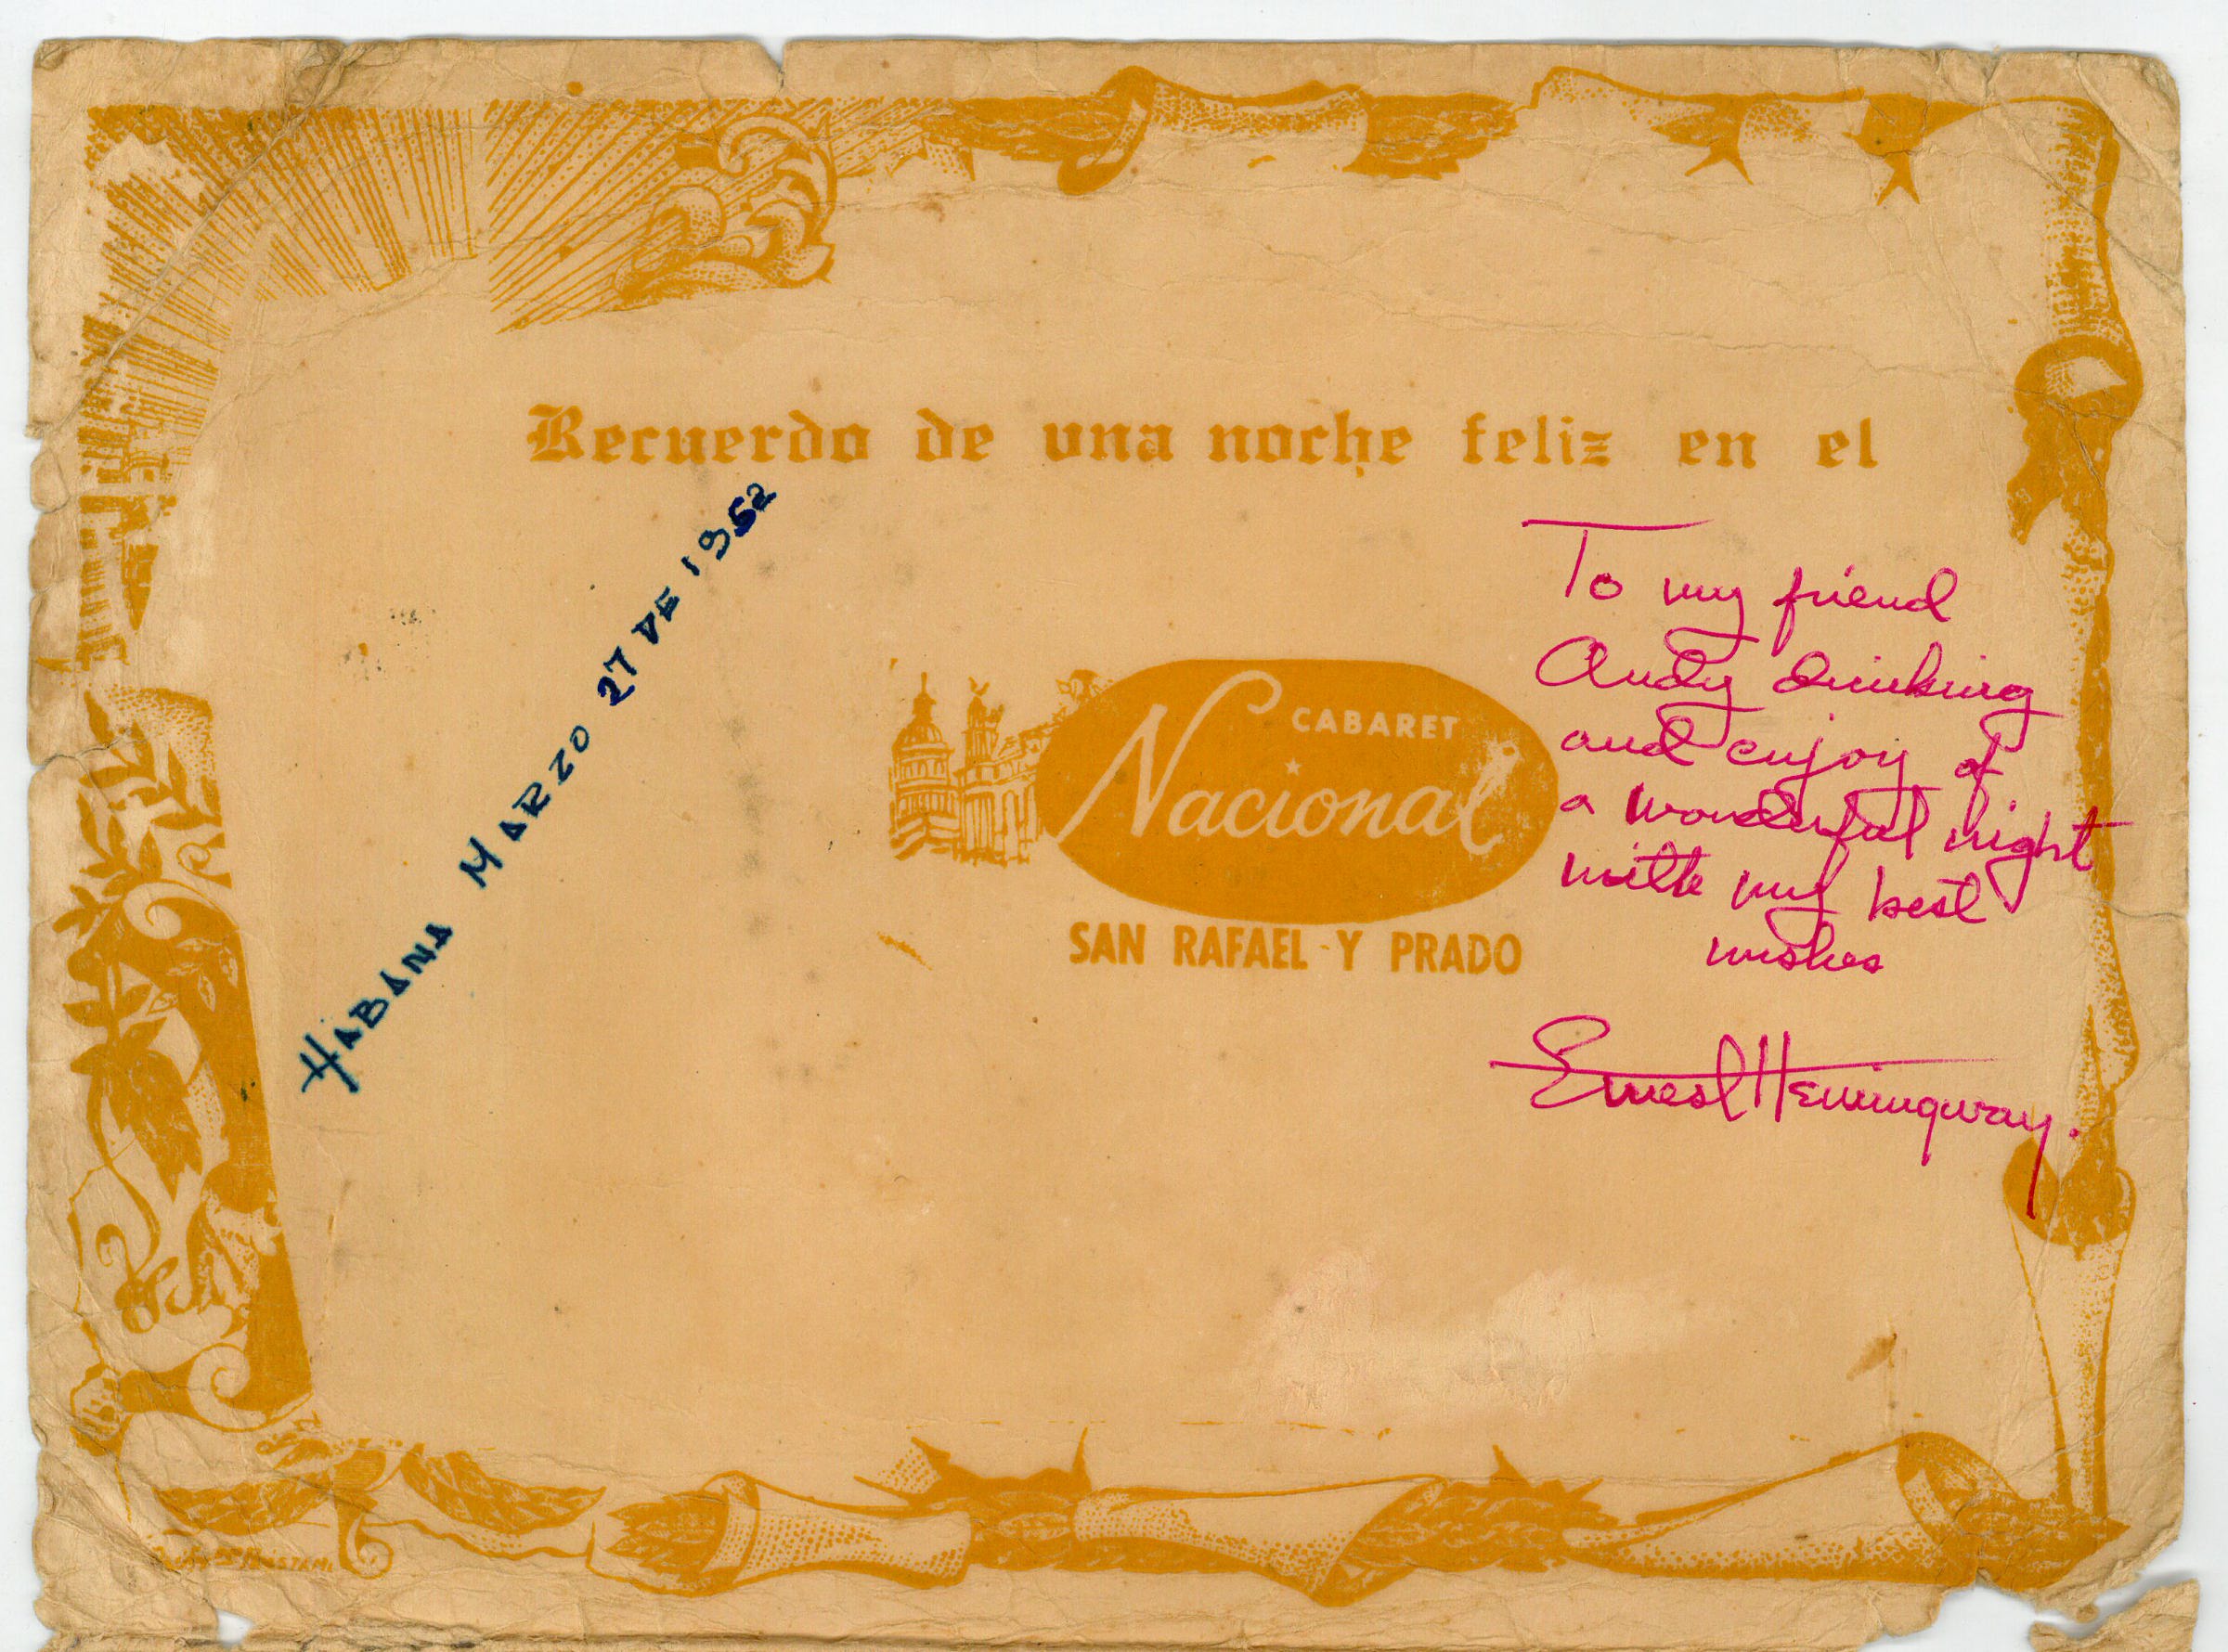 Recuerdo de una noche feliz en el
HABANA MARZO 27 DE 1952
CABARET
Nacional
SAN RAFAEL Y PRADO
To my friend
Andy drinking
and enjoy of
a wonderful night
with my best
wishes
Ernest Hemingway.